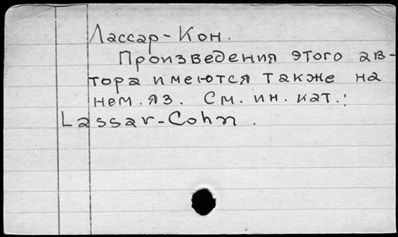 Лассар-Кон.
Произведения этого ав-
тора имеются также на
нем. яз. См. ин. кат.:
Lassar-Cohn.